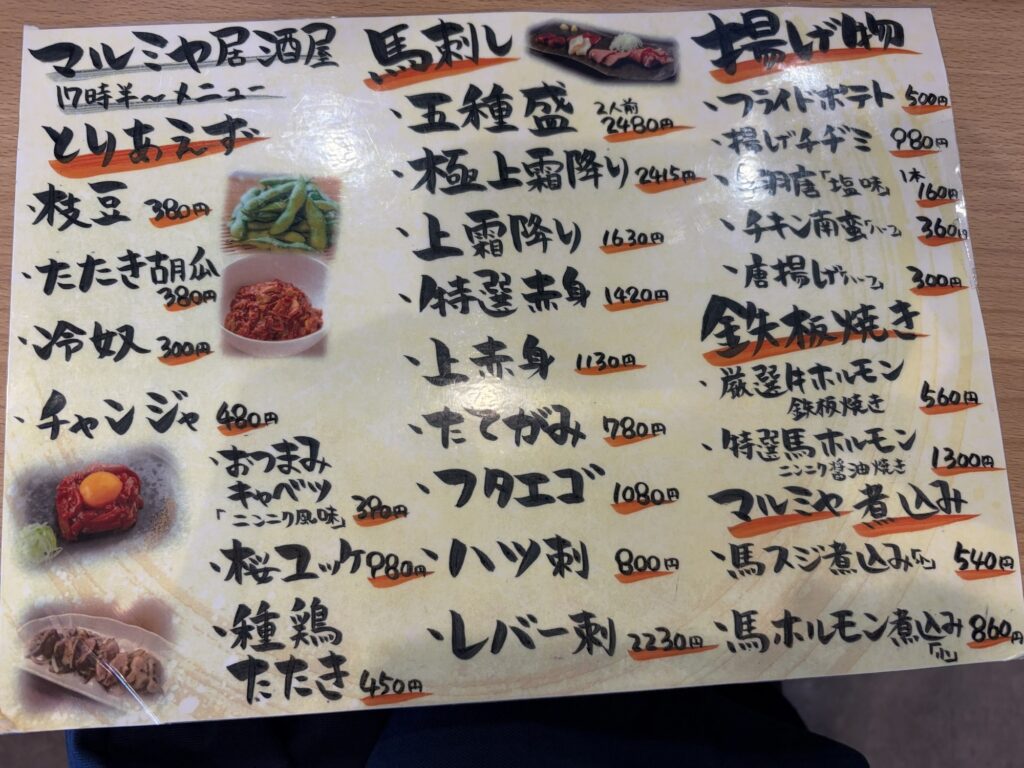 マルミヤ居酒屋
17時半〜メニュー
とりあえず
・枝豆 380円
・たたき胡瓜
380円
・冷奴 300円
・チャンジャ 480円
・おつまみ
キャベツ
「ニンニク風味」390円
・桜ユッケ 980円
・種鶏
たたき 450円
馬刺し
・五種盛 2人前
2480円
・極上霜降り 2415円
・上霜降り 1630円
・特選赤身 1420円
・上赤身 1130円
・たてがみ 780円
・フタエゴ 1080円
・ハツ刺 800円
・レバー刺 2230円
揚げ物
・フライドポテト 500円
・揚げチヂミ 980円
唐「塩味」 1本
160円
・チキン南蛮 360円
・唐揚げ 300円
鉄板焼き
・厳選牛ホルモン
鉄板焼き 560円
・特選馬ホルモン
ニンニク醤油焼き 1300円
マルミヤ煮込み
・馬スジ煮込み「小」 540円
・馬ホルモン煮込み 860円
「小」